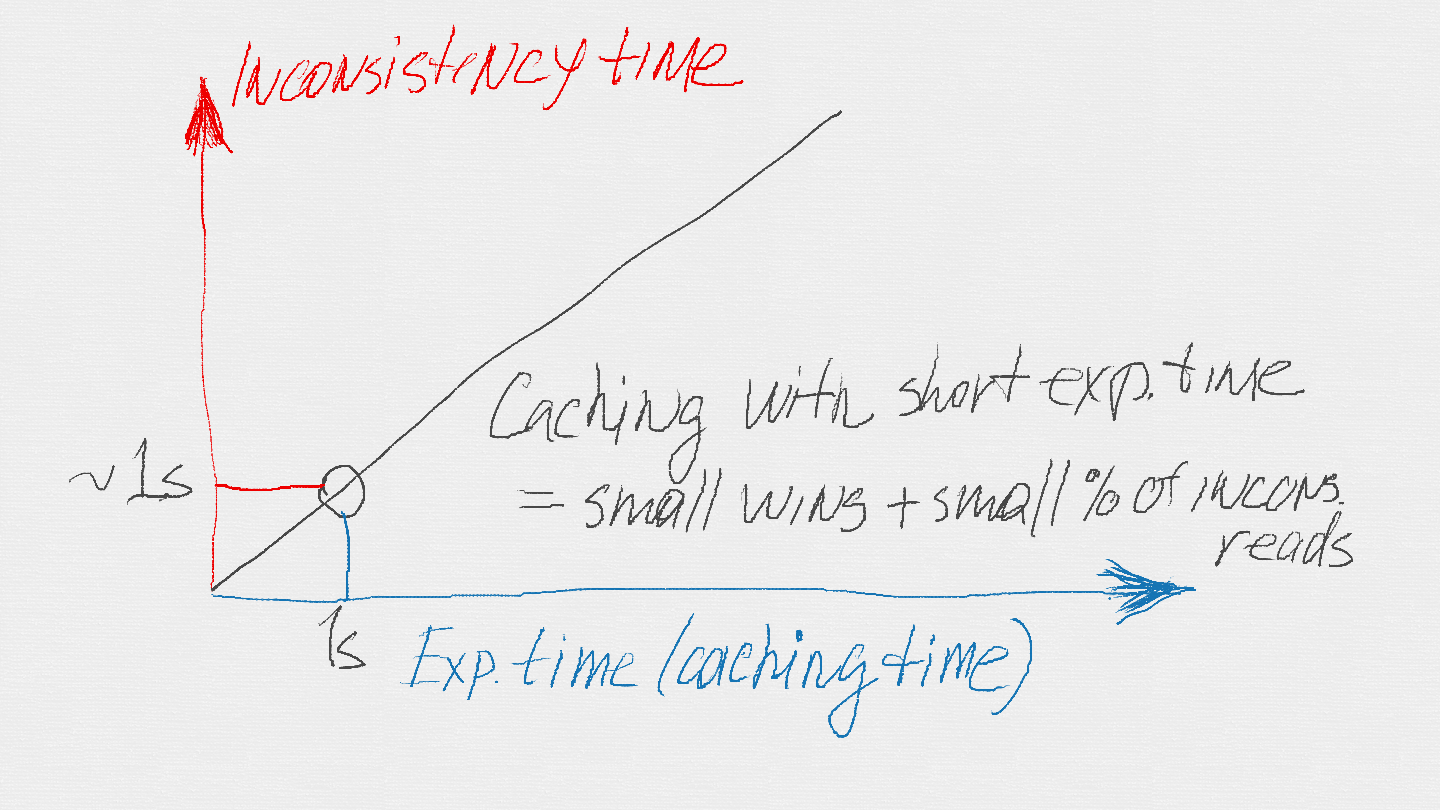 Inconsistency time
Caching with short exp. time
~ 1s
= small wins + small % of incons.
reads
1s
Exp. time (caching time)